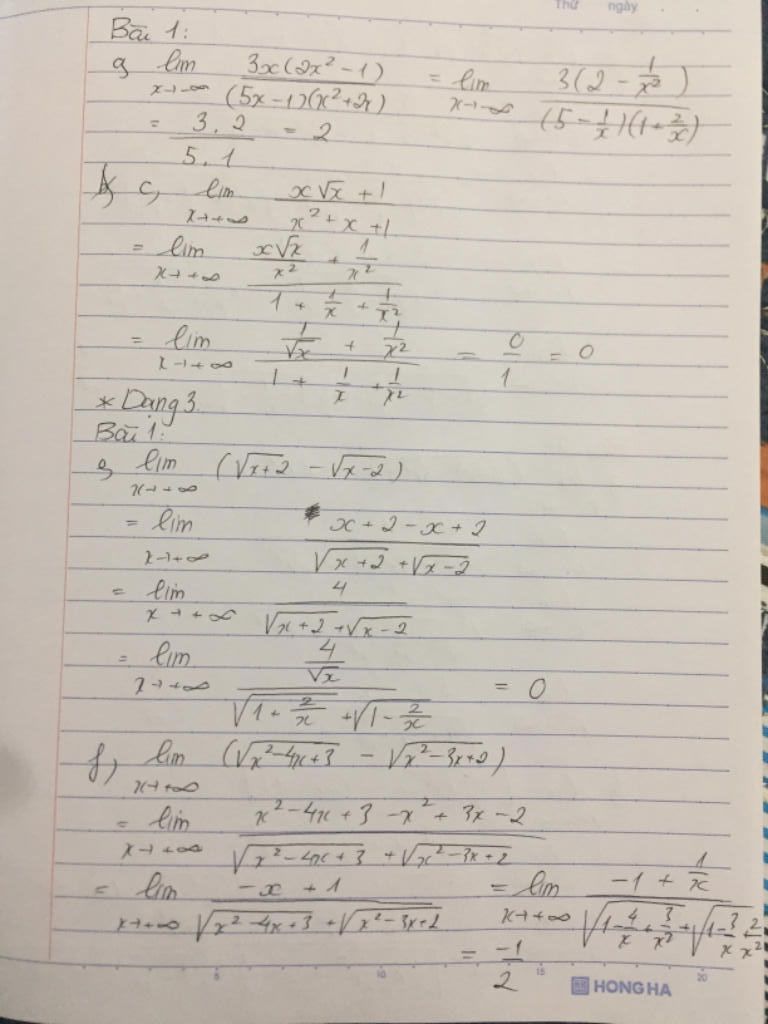 Thứ ngày
Bài 1:
a, lim x→-∞ 3x(2x² - 1) / (5x - 1)(x² + 2x) = lim x→-∞ 3(2 - 1/x²) / (5 - 1/x)(1 + 2/x)
= 3.2 / 5.1 = 2
c, lim x→+∞ (x√x + 1) / (x² + x + 1)
= lim x→+∞ (x√x/x² + 1/x²) / (1 + 1/x + 1/x²)
= lim x→+∞ (1/√x + 1/x²) / (1 + 1/x + 1/x²) = 0/1 = 0
* Dạng 3
Bài 1:
e, lim x→+∞ (√(x+2) - √(x-2))
= lim x→+∞ (x + 2 - x + 2) / (√(x+2) + √(x-2))
= lim x→+∞ 4 / (√(x+2) + √(x-2))
= lim x→+∞ (4/√x) / (√(1 + 2/x) + √(1 - 2/x)) = 0
f, lim x→+∞ (√(x² - 4x + 3) - √(x² - 3x + 2))
= lim x→+∞ (x² - 4x + 3 - x² + 3x - 2) / (√(x² - 4x + 3) + √(x² - 3x + 2))
= lim x→+∞ (-x + 1) / (√(x² - 4x + 3) + √(x² - 3x + 2)) = lim x→+∞ (-1 + 1/x) / (√(1 - 4/x + 3/x²) + √(1 - 3/x + 2/x²))
= -1/2
5 10 15 20
HONG HA